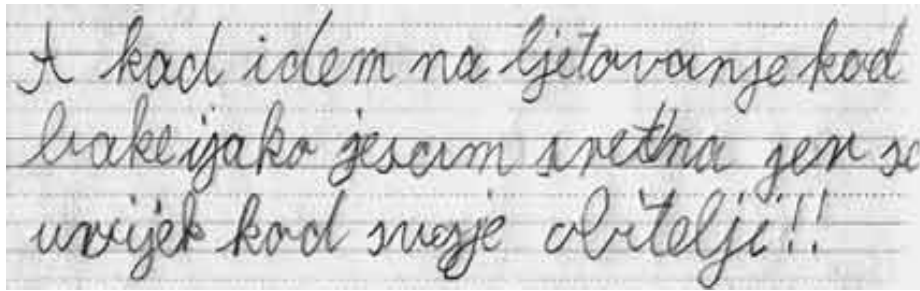 A kad idem na ljetovanje kod
bake ijako jesam sretna jer s
uvijek kod svoje obitelji!!